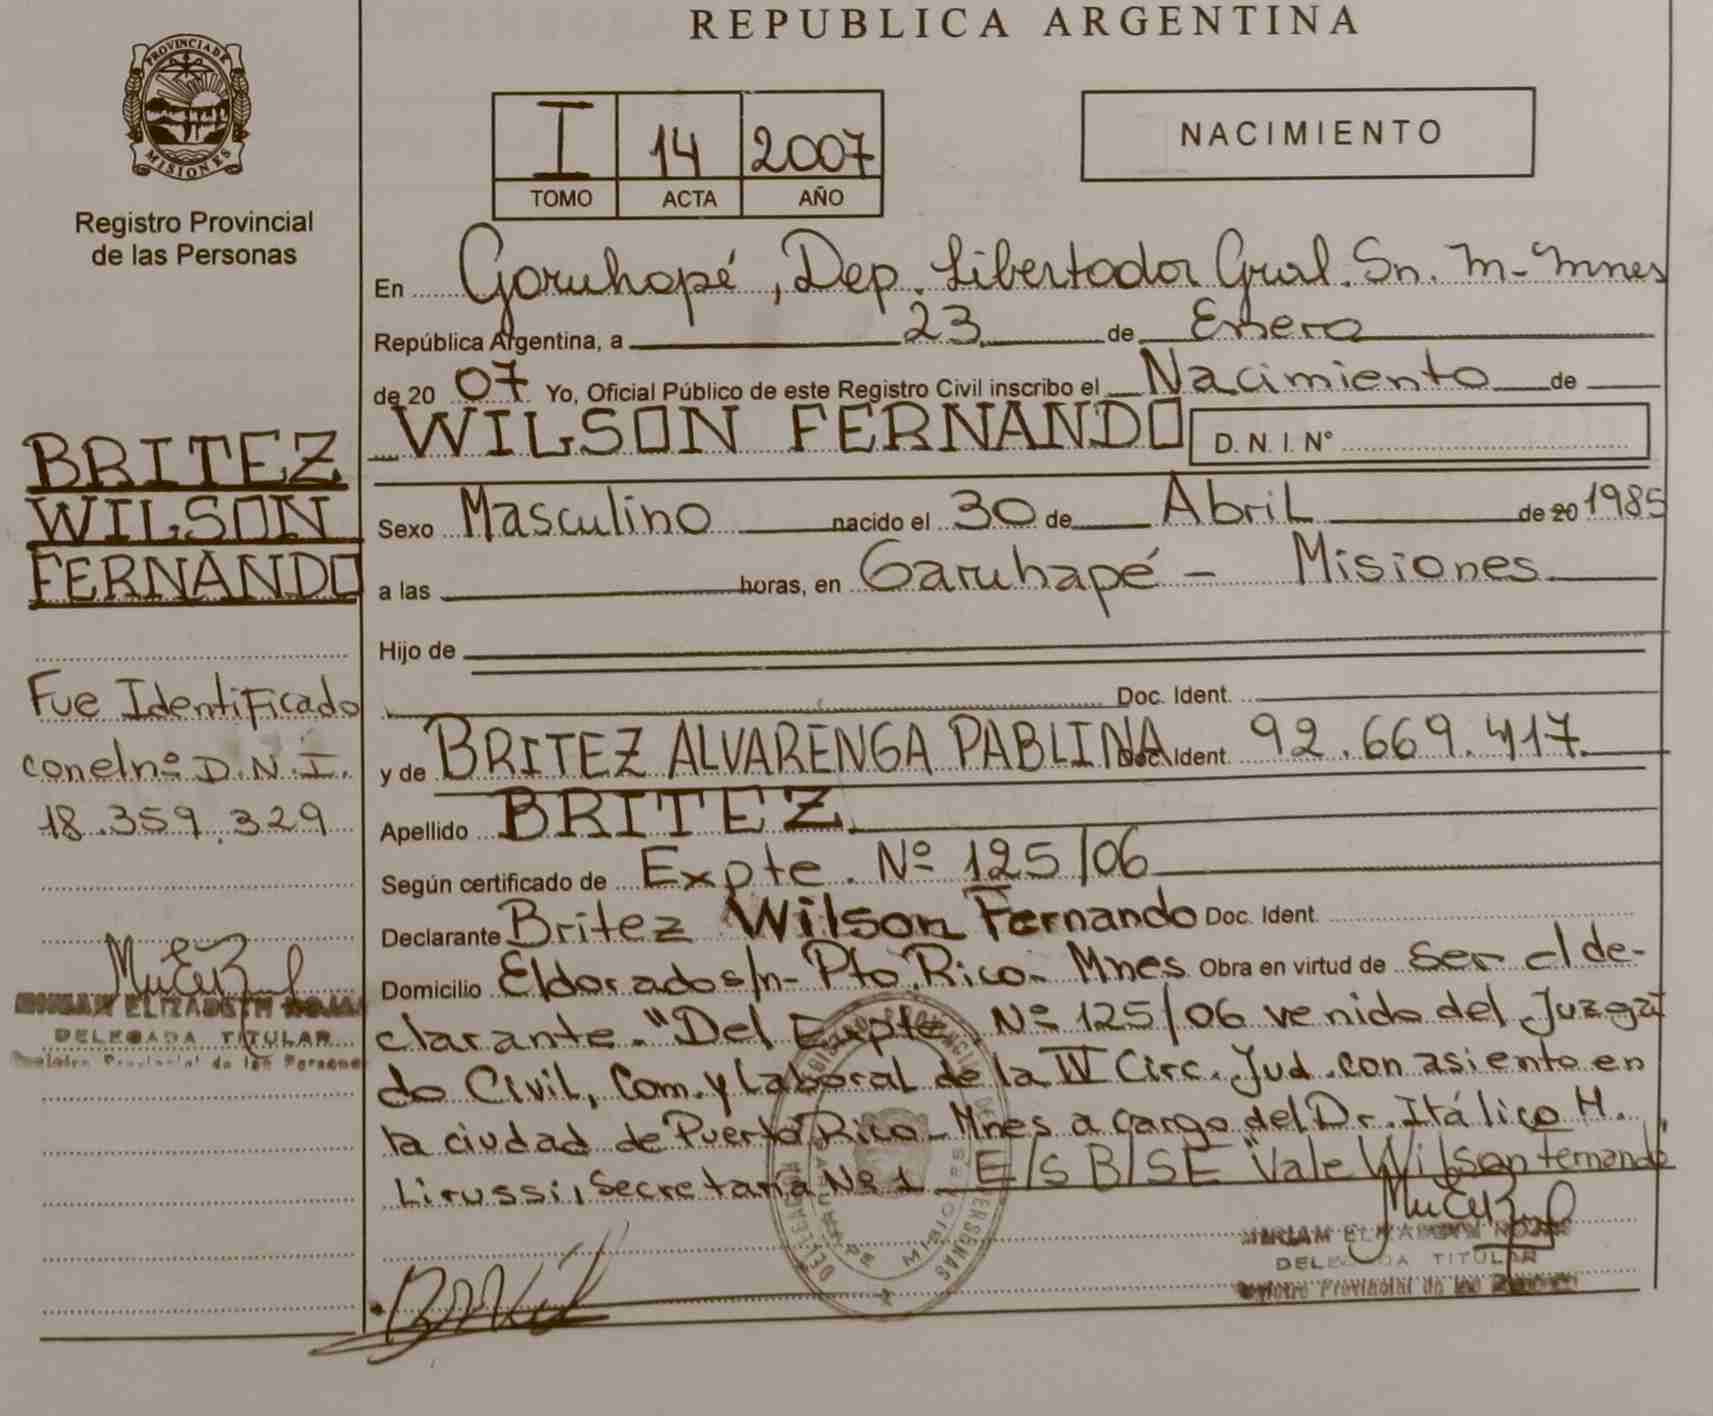 REPUBLICA ARGENTINA
PROVINCIA DE
MISIONES
Registro Provincial
de las Personas
I 14 2007
TOMO ACTA AÑO
NACIMIENTO
En Garuhapé, Dep. Libertador Gral. Sn. M- Mnes
República Argentina, a 23 de Enero
de 20 07 Yo, Oficial Público de este Registro Civil inscribo el Nacimiento de
WILSON FERNANDO D. N. I. Nº
Sexo Masculino nacido el 30 de Abril de 20 1985
a las horas, en Garuhapé - Misiones
Hijo de
Doc. Ident.
y de BRITEZ ALVARENGA PABLINA Doc. Ident. 92.669.417
Apellido BRITEZ
Según certificado de Expte. Nº 125/06
Declarante Britez Wilson Fernando Doc. Ident.
Domicilio Eldorado s/n- Pto. Rico- Mnes Obra en virtud de ser el de-
clarante. "Del Expte. Nº 125/06 venido del Juzga
do Civil, Com. y Laboral de la IV Circ. Jud. con asiento en
la ciudad de Puerto Rico- Mnes a cargo del Dr. Itálico H.
Lirussi, Secretaría Nº 1 E/S B/SE Vale Wilson Fernando
MIRIAM ELIZABETH ROJAS
DELEGADA TITULAR
Registro Provincial de las Personas
BRITEZ
WILSON
FERNANDO
Fue Identificado
con el nº D.N.I.
18.359.329
MIRIAM ELIZABETH ROJAS
DELEGADA TITULAR
Registro Provincial de las Personas